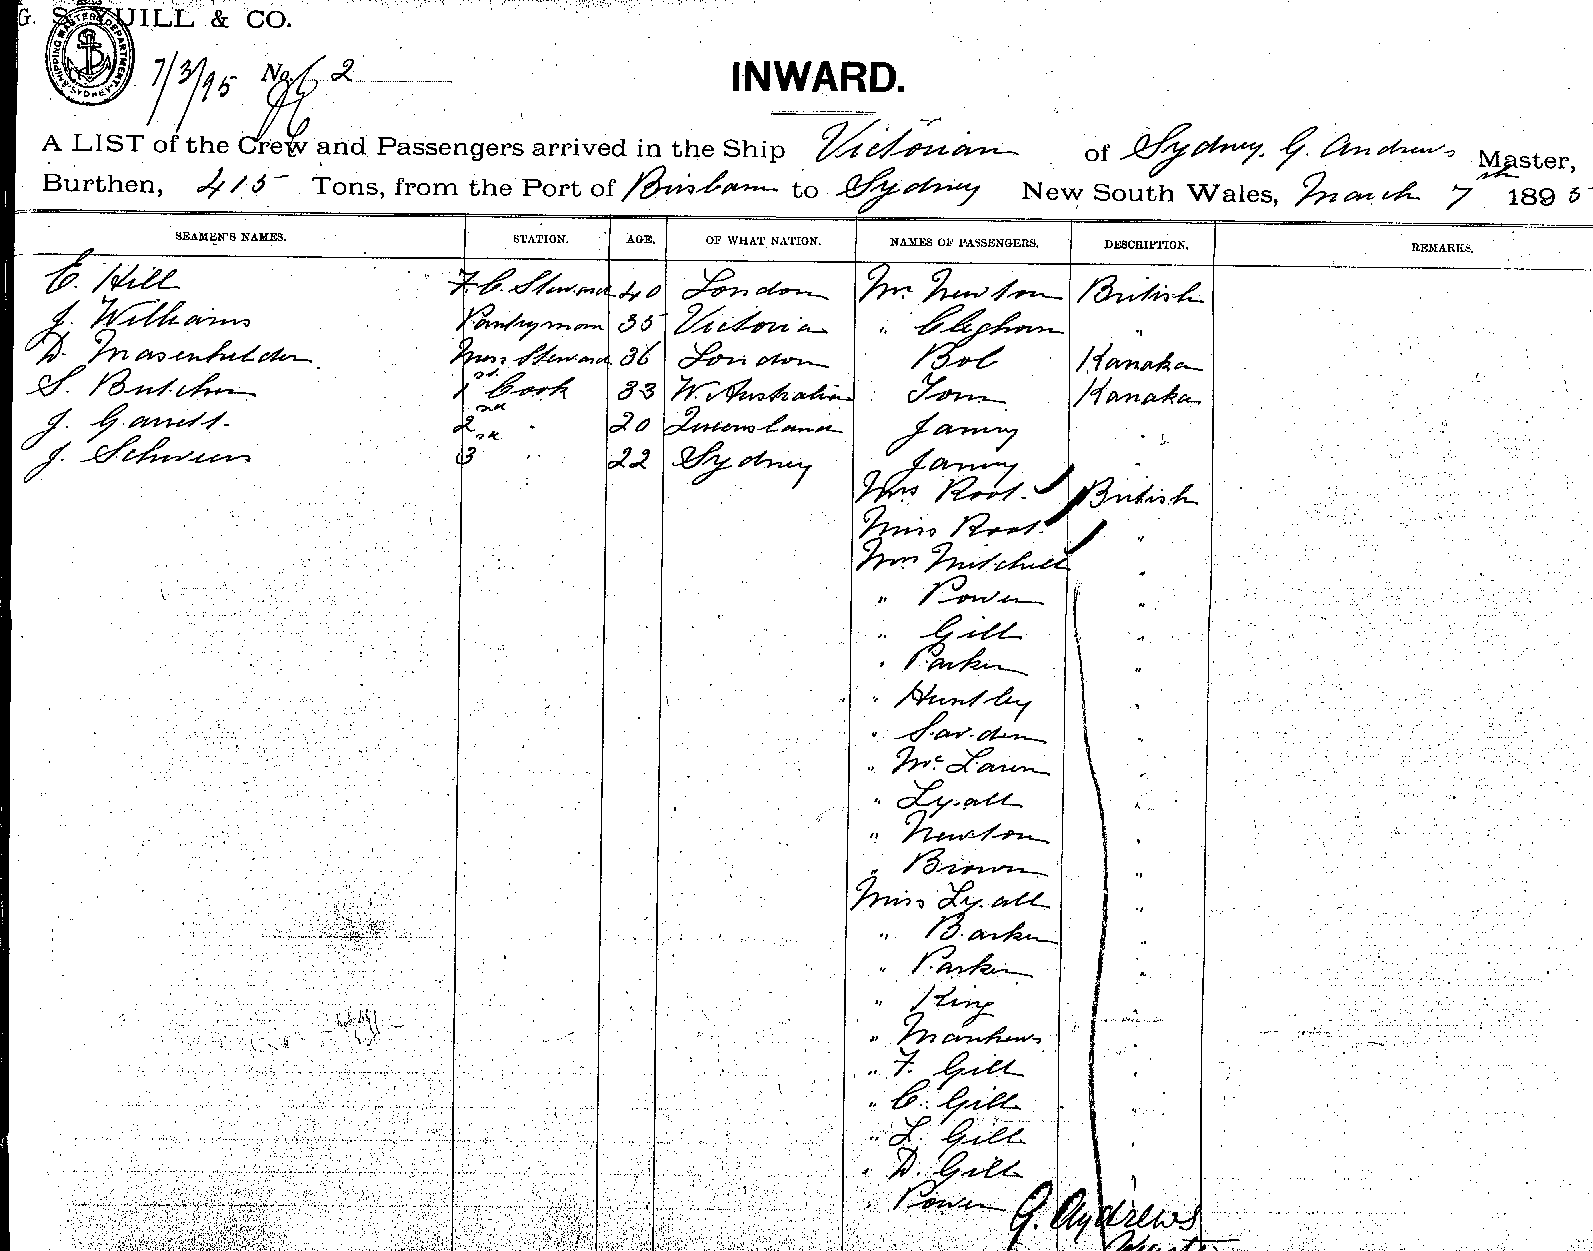 G. S. YUILL & CO.
7/3/95 No 2
INWARD.
A LIST of the Crew and Passengers arrived in the Ship Victorian of Sydney, G. Andrews Master,
Burthen, 415 Tons, from the Port of Brisbane to Sydney New South Wales, March 7th 1895
SEAMEN'S NAMES. STATION. AGE. OF WHAT NATION. NAMES OF PASSENGERS. DESCRIPTION. REMARKS.
E. Hill F.C. Steward 40 London Mr Newton British
J. Williams Pantryman 35 Victoria " Cleghorn "
D. Mess Steward 36 London Bob Kanaka
S. Butcher 1st Cook 33 W. Australia Tom Kanaka
J. Garrett 2nd " 20 Queensland Jammy "
J. 3rd " 22 Sydney Jammy "
Mrs Root British
Miss Root "
Mrs Mitchell "
" Power "
" Gill "
" Parker "
" Huntley "
" "
" McLaren "
" Lyall "
" Newton "
" Brown "
Miss Lyall "
" Barker "
" Parker "
" King "
" "
" F. Gill "
" C. Gill "
" L. Gill "
" D. Gill "
" Power
G. Andrews